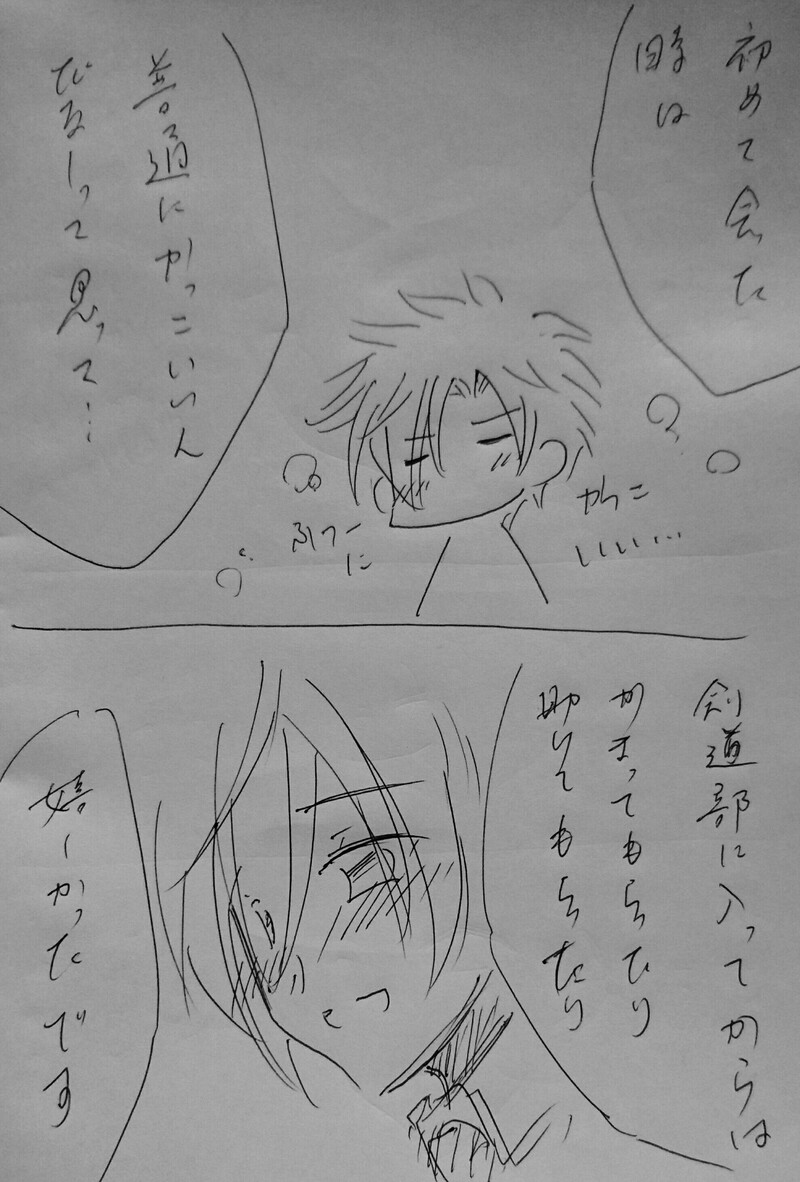 初めて会った
時は
普通にかっこいいん
だなーって思って…
ふつーに
かっこ
いいい…
剣道部に入ってからは
かまってもらったり
助けてもらったり
嬉しかったです